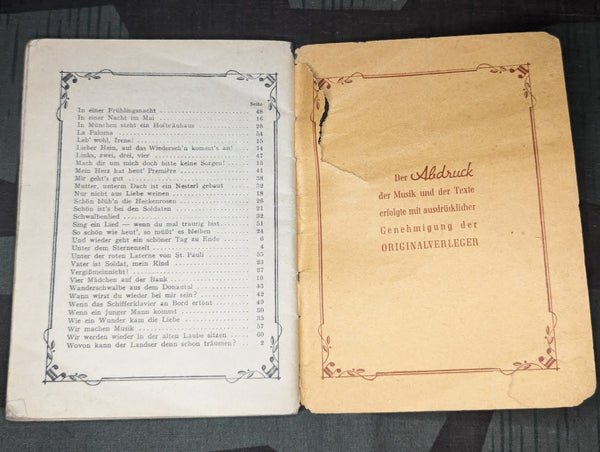 Seite
In einer Frühlingsnacht 48
In einer Nacht im Mai 16
In München steht ein Hofbräuhaus 28
La Paloma 54
Leb' wohl, Irene! 15
Lieber Hein, auf das Wiederseh'n kommt's an! 14
Links, zwei, drei, vier 47
Mach dir um mich doch bitte keine Sorgen! 13
Mein Herz hat heut' Première 41
Mir geht's gut 38
Mutter, unterm Dach ist ein Nesterl gebaut 32
Nur nicht aus Liebe weinen 18
Schön blüh'n die Heckenrosen 26
Schön ist's bei den Soldaten 21
Schwalbenlied 52
Sing ein Lied — wenn du mal traurig bist 51
So schön wie heut', so müßt' es bleiben 24
Und wieder geht ein schöner Tag zu Ende 6
Unter dem Sternenzelt 4
Unter der roten Laterne von St. Pauli 55
Vater ist Soldat, mein Kind 23
Vergißmeinnicht! 27
Vier Mädchen auf der Bank 10
Wanderschwalbe aus dem Donautal 43
Wann wirst du wieder bei mir sein? 42
Wenn das Schifferklavier an Bord ertönt 49
Wenn ein junger Mann kommt 59
Wie ein Wunder kam die Liebe 35
Wir machen Musik 57
Wir werden wieder in der alten Laube sitzen 60
Wovon kann der Landser denn schon träumen? 2
Der Abdruck
der Musik und der Texte
erfolgte mit ausdrücklicher
Genehmigung der
ORIGINALVERLEGER